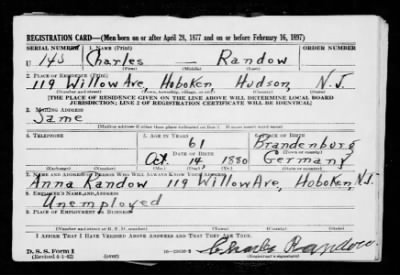 REGISTRATION CARD—(Men born on or after April 28, 1877 and on or before February 16, 1897)
SERIAL NUMBER 1. NAME (Print) ORDER NUMBER
U 145 Charles — Randow
2. PLACE OF RESIDENCE (Print)
119 Willow Ave, Hoboken Hudson, N.J.
(Number and street) (Town, township, village, or city) (County) (State)
[THE PLACE OF RESIDENCE GIVEN ON THE LINE ABOVE WILL DETERMINE LOCAL BOARD
JURISDICTION; LINE 2 OF REGISTRATION CERTIFICATE WILL BE IDENTICAL]
3. MAILING ADDRESS
Same
[Mailing address if other than place indicated on line 2. If same insert word same]
4. TELEPHONE 5. AGE IN YEARS 6. PLACE OF BIRTH
61 Brandenburg
DATE OF BIRTH
Oct. 14, 1880 Germany
(Exchange) (Number) (Mo.) (Day) (Yr.) (State or country)
7. NAME AND ADDRESS OF PERSON WHO WILL ALWAYS KNOW YOUR ADDRESS
Anna Randow 119 Willow Ave, Hoboken, N.J.
8. EMPLOYER'S NAME AND ADDRESS
Unemployed
9. PLACE OF EMPLOYMENT OR BUSINESS
(Number and street or R. F. D. number) (Town) (County) (State)
I AFFIRM THAT I HAVE VERIFIED ABOVE ANSWERS AND THAT THEY ARE TRUE.
D. S. S. Form 1
(Revised 4-1-42) (over) Charles Randow
(Registrant's signature)